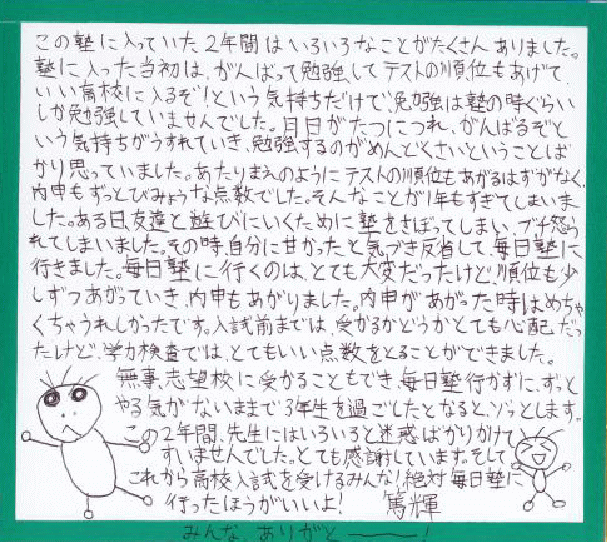 この塾に入っていた2年間はいろいろなことがたくさんありました。
塾に入った当初は、がんばって勉強してテストの順位もあげて
いい高校に入るぞ!という気持ちだけで、勉強は塾の時ぐらい
しか勉強していませんでした。月日がたつにつれ、がんばるぞと
いう気持ちがうすれていき、勉強するのがめんどくさいということば
かり思っていました。あたりまえのようにテストの順位もあがるはずがなく、
内申もずっとびみょうな点数でした。そんなことが1年もすぎてしまいま
した。ある日、友達と遊びにいくために塾をさぼってしまい、ブチ怒ら
れてしまいました。その時、自分に甘かったと気づき反省して、毎日塾に
行きました。毎日塾に行くのは、とても大変だったけど、順位も少
しずつあがっていき、内申もあがりました。内申があがった時はめちゃ
くちゃうれしかったです。入試前までは、受かるかどうかとても心配だっ
たけど、学力検査では、とてもいい点数をとることができました。
無事、志望校に受かることもでき、毎日塾行かずに、ずっと
やる気がないままで3年生を過ごしたとなると、ゾッとします。
この2年間、先生にはいろいろと迷惑ばかりかけて
すいませんでした。とても感謝しています。そして
これから高校入試を受けるみんな!絶対毎日塾に
行ったほうがいいよ! 篤輝
みんな、ありがとーー!